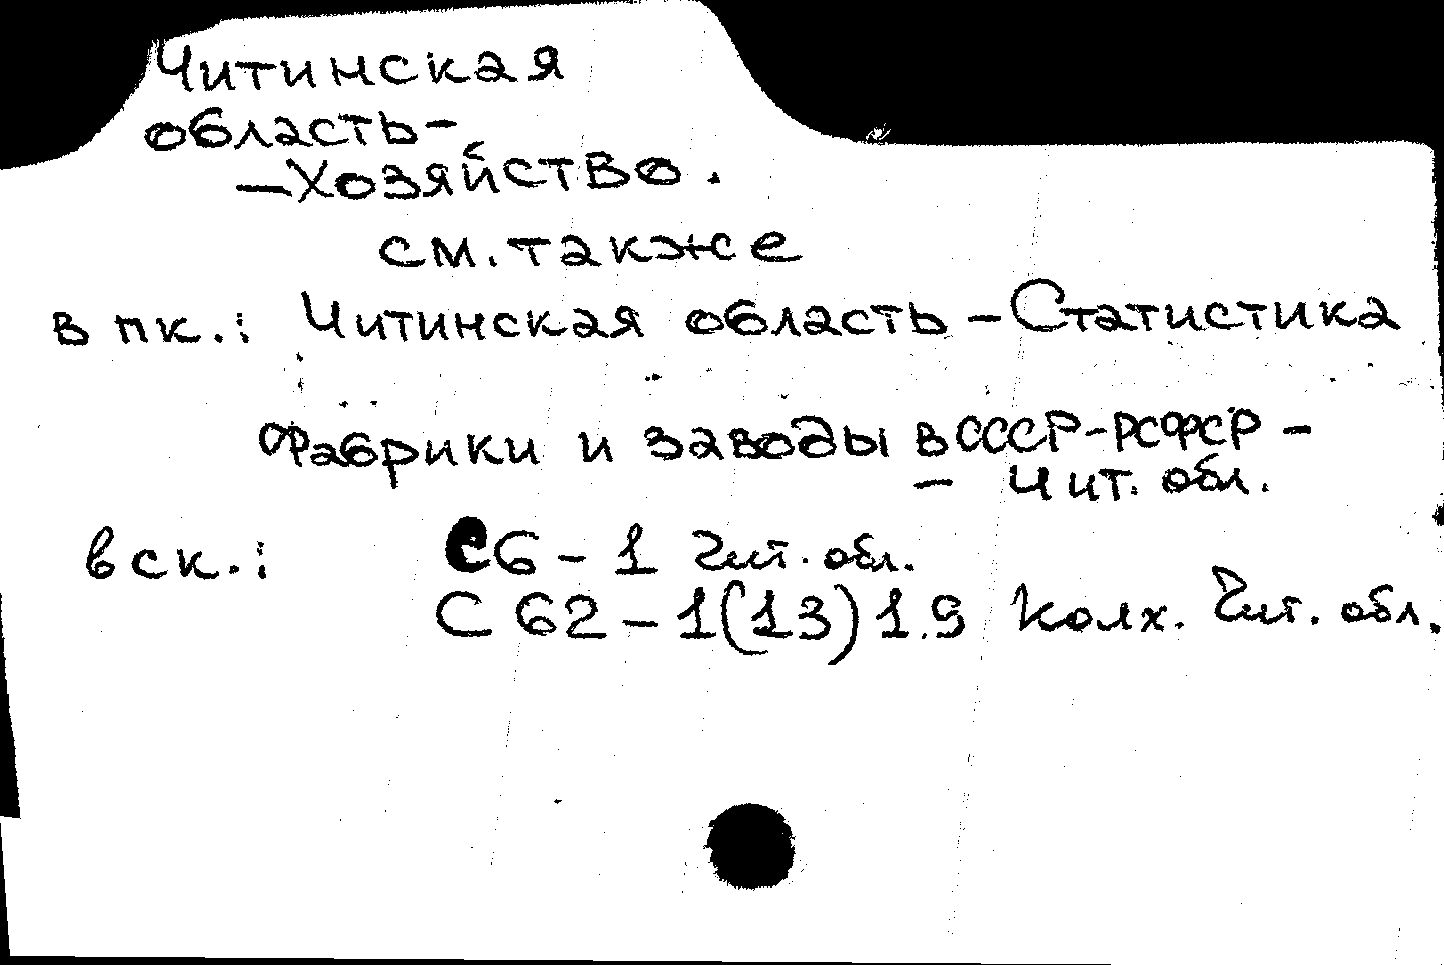 Читинская
область-
-Хозяйство.
см. также
в пк.: Читинская область - Статистика
Фабрики и заводы в СССР-РСФСР -
- Чит. обл.
в ск.: С6-1 Чит. обл.
С62-1(13)1.9 Колх. Чит. обл.